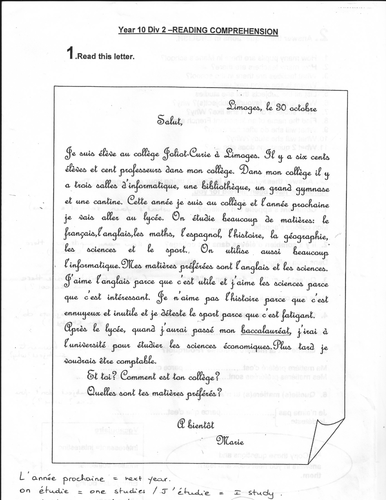 Year 10 Div 2 –READING COMPREHENSION
1.Read this letter.
Limoges, le 30 octobre
Salut,
Je suis élève au collège Joliot-Curie à Limoges. Il y a six cents
élèves et cent professeurs dans mon collège. Dans mon collège il y
a trois salles d'informatique, une bibliothèque, un grand gymnase
et une cantine. Cette année je suis au collège et l'année prochaine
je vais aller au lycée. On étudie beaucoup de matières: le
français,l'anglais,les maths, l'espagnol, l'histoire, la géographie,
les sciences et le sport. On utilise aussi beaucoup
l'informatique.Mes matières préférées sont l'anglais et les sciences.
J'aime l'anglais parce que c'est utile et j'aime les sciences parce
que c'est intéressant. Je n'aime pas l'histoire parce que c'est
ennuyeux et inutile et je déteste le sport parce que c'est fatigant.
Après le lycée, quand j'aurai passé mon baccalauréat, j'irai à
l'université pour étudier les sciences économiques.Plus tard je
voudrais être comptable.
Et toi? Comment est ton collège?
Quelles sont tes matières préférés?
A bientôt
Marie
L'année prochaine = next year.
on étudie = one studies / J'étudie = I study.